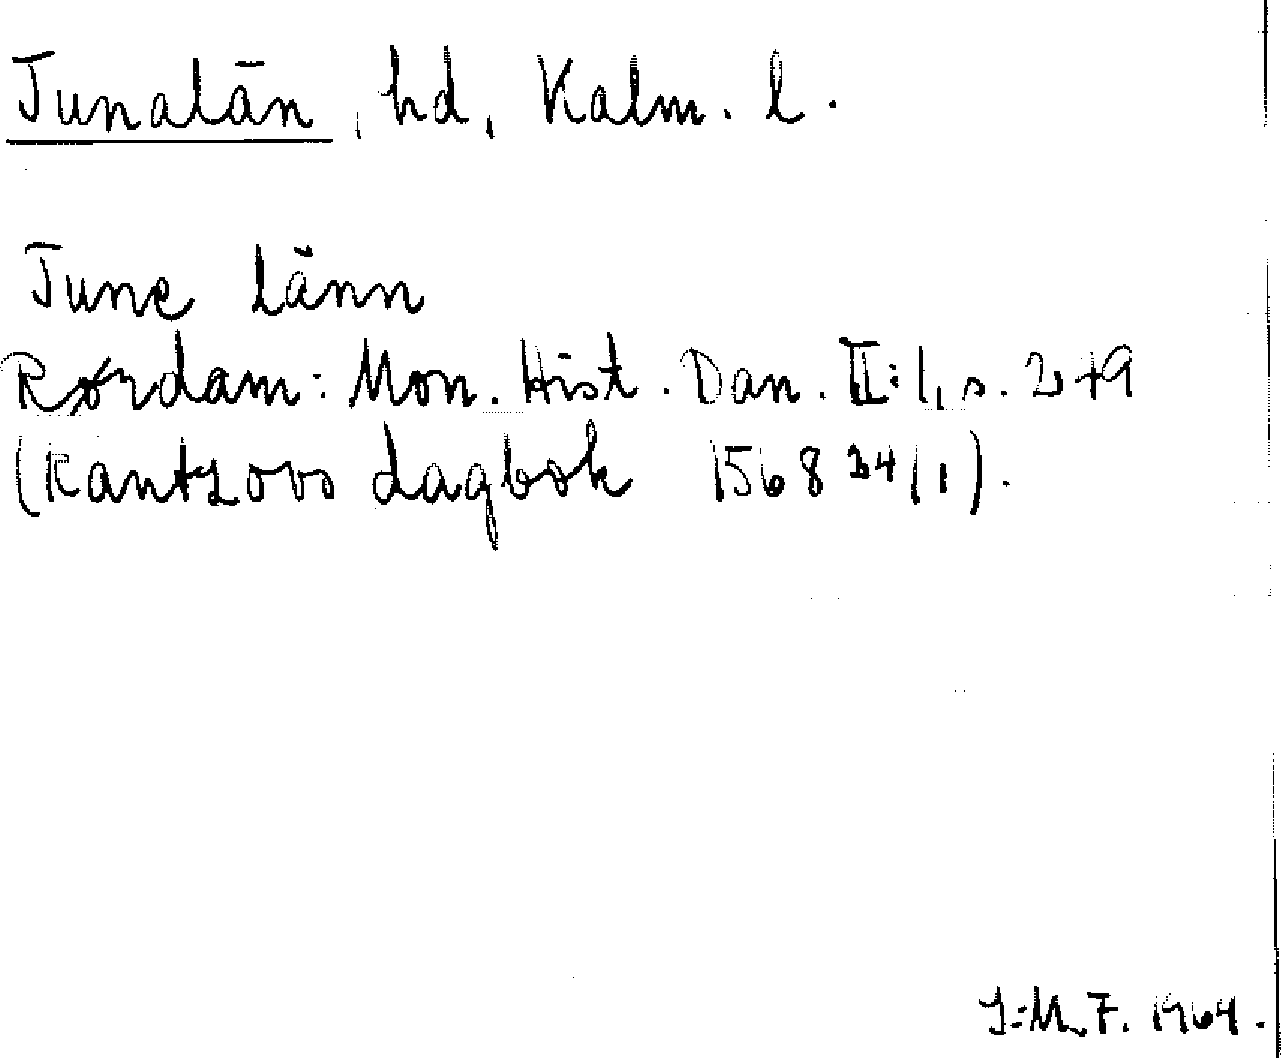 Tunalän, hd, Kalm. l.
Tune länn
Rørdam: Mon. Hist. Dan. II:1, s. 249
(Kantzovs dagbok 1568 24/1).
I:M.F. 1964.